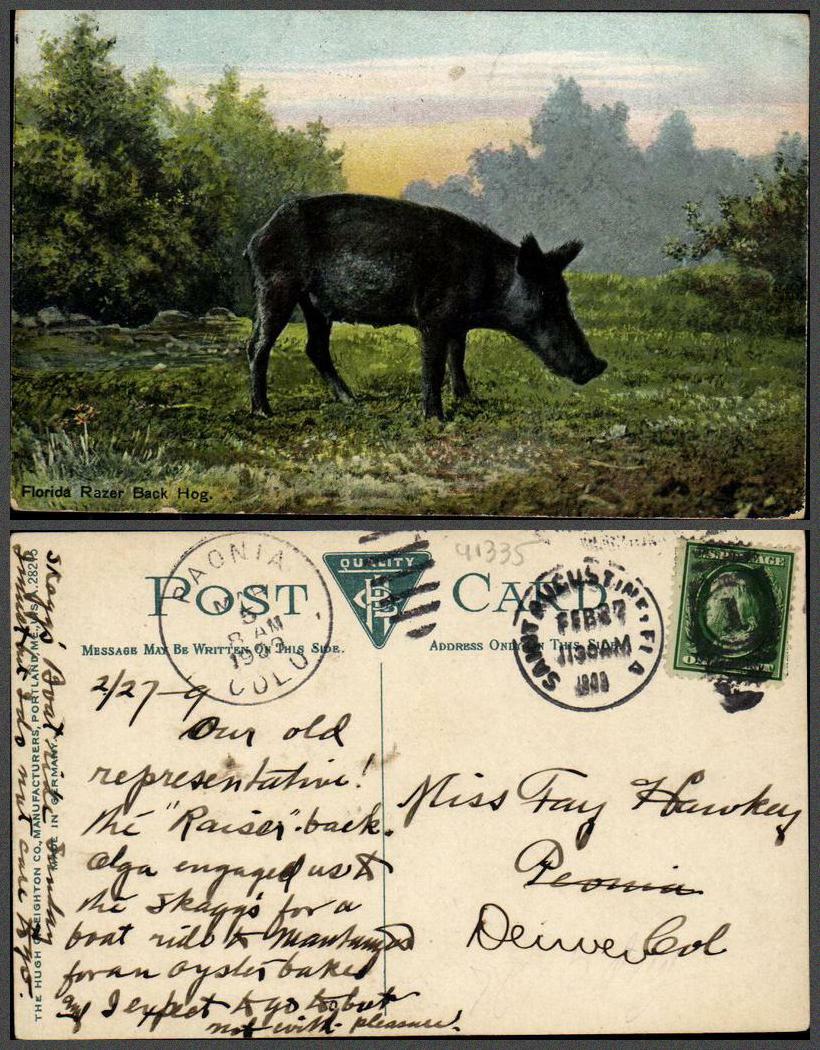 Florida Razer Back Hog.
POST CARD
QUALITY
91335
PAONIA
MAR
8 AM
1909
COLO.
SAINT AUGUSTINE, FLA
FEB 27
1130AM
1909
1
MESSAGE MAY BE WRITTEN ON THIS SIDE.
ADDRESS ONLY ON THIS SIDE.
THE HUGH C. LEIGHTON CO., MANUFACTURERS, PORTLAND, ME., U.S.A.
MADE IN GERMANY.
2/27-9
Our old
representative!
the "Raiser"-back.
Olga engaged us &
the Skaggs for a
boat ride to
for an oyster bake
I expect to go to but
not with pleasure!
Skaggs Boat ride Sunday
but I do not care to go.
Miss Fay Hawkey
Peonia
Denver Col